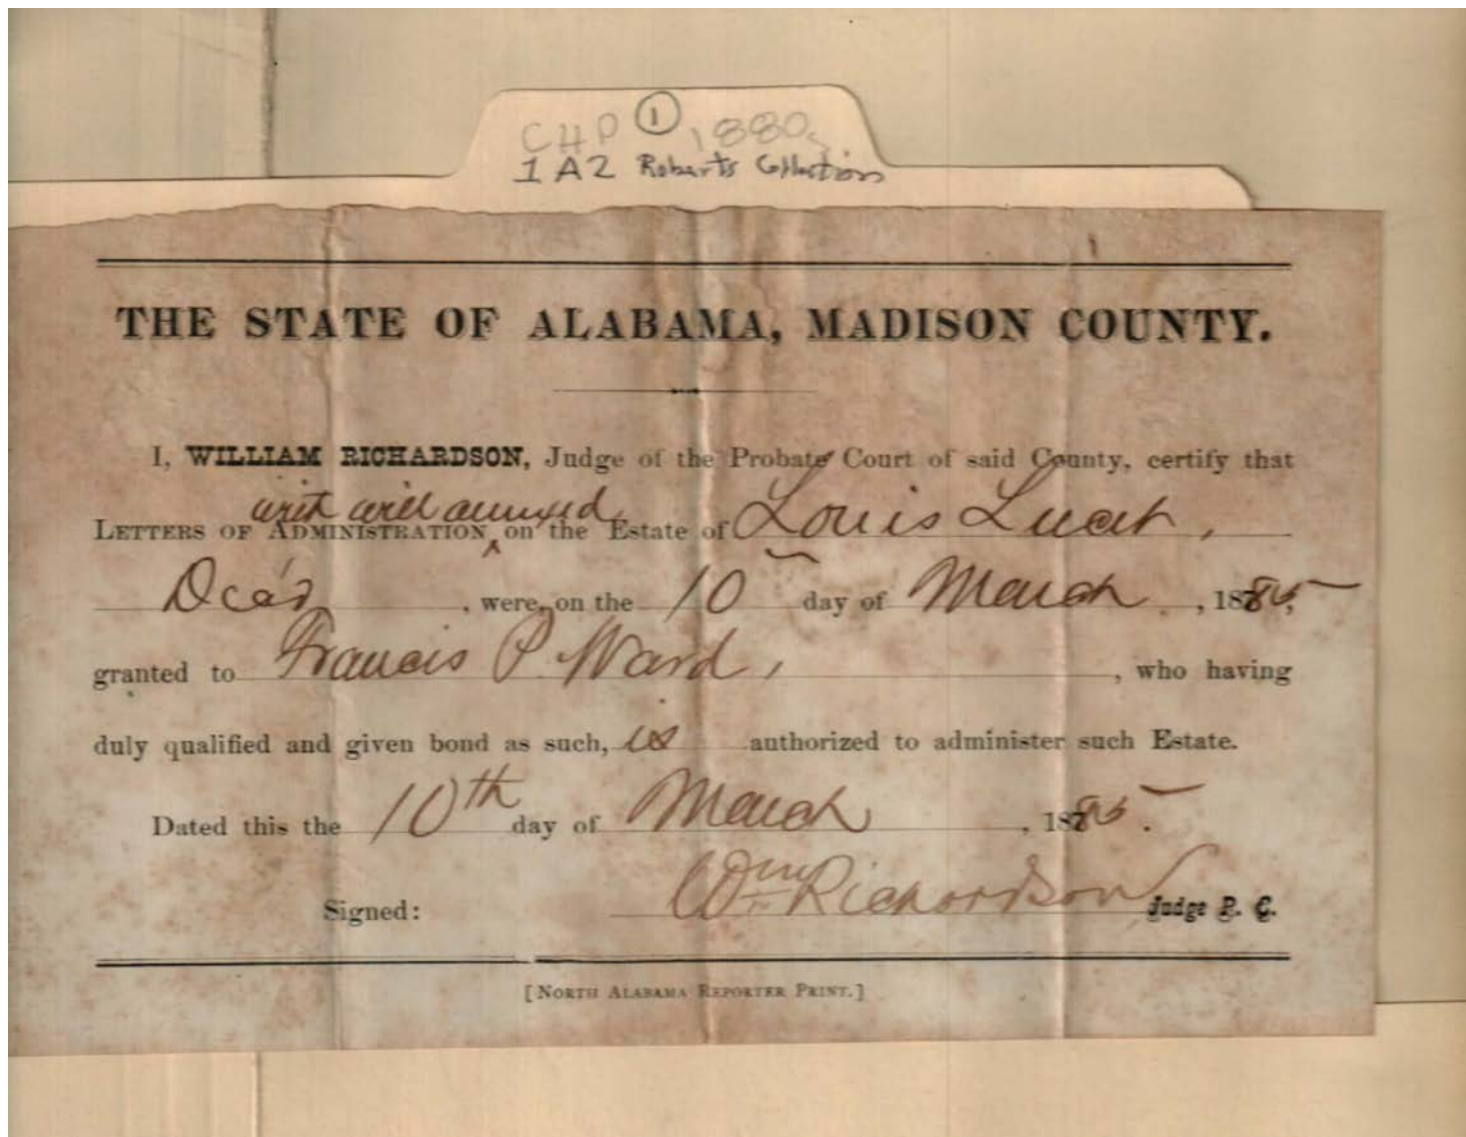 CHP ① 1880s
1A2 Roberts Collection
THE STATE OF ALABAMA, MADISON COUNTY.
I, WILLIAM RICHARDSON, Judge of the Probate Court of said County, certify that
with will annexed
LETTERS OF ADMINISTRATION ^ on the Estate of Louis Lucat,
Dec'd, were, on the 10 day of March, 1885,
granted to Francis P. Ward, , who having
duly qualified and given bond as such, is authorized to administer such Estate.
Dated this the 10th day of March, 1885.
Signed: Wm Richardson Judge P. C.
[NORTH ALABAMA REPORTER PRINT.]